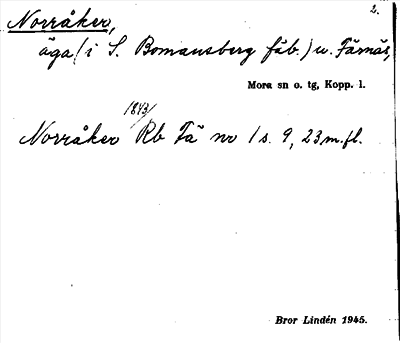 Norråker, 2.
äga (i S. Bomansberg fäb.) w. Färnäs,
Mora sn o. tg, Kopp. l.
1843/
Norråker Rb Fä nr 1 s. 9, 23 m.fl.
Bror Lindén 1945.